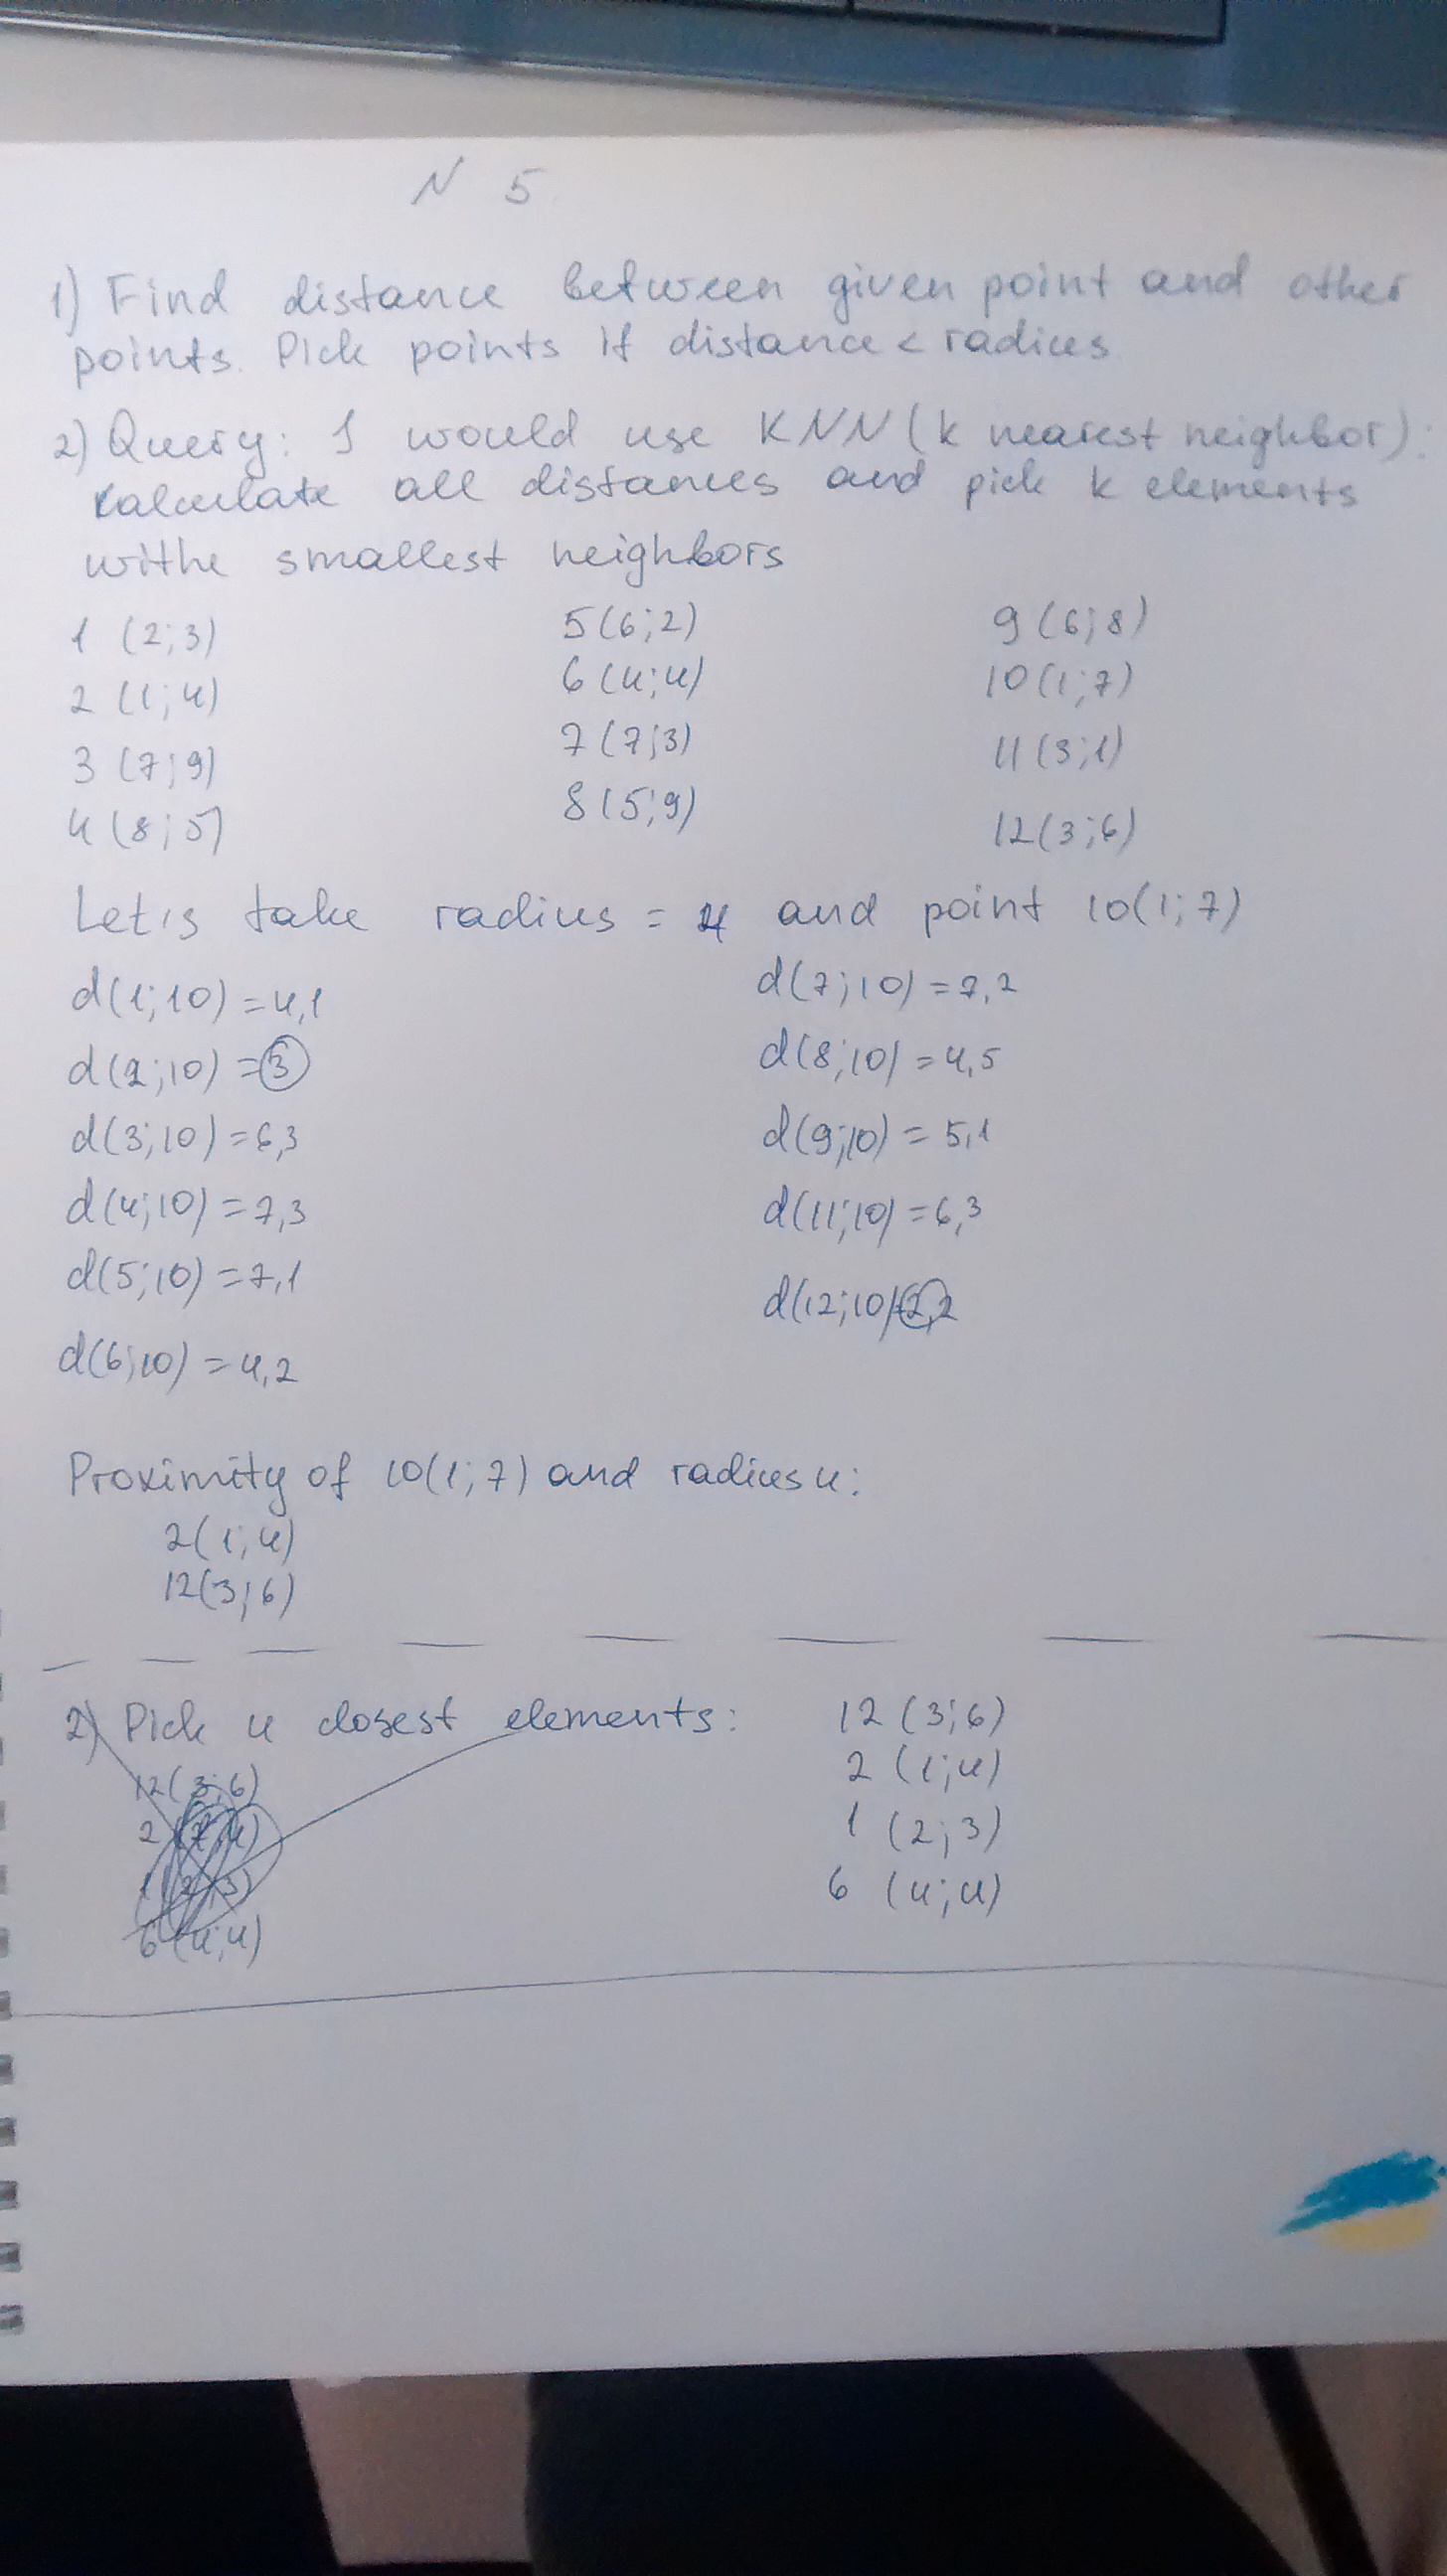 N 5
1) Find distance between given point and other
points. Pick points if distance < radius
2) Query: I would use KNN (k nearest neighbor):
Kalculate all distances and pick k elements
withe smallest neighbors
1 (2;3)
2 (1;4)
3 (7;9)
4 (8;5)
5 (6;2)
6 (4;4)
7 (7;3)
8 (5;9)
9 (6;8)
10 (1;7)
11 (3;1)
12 (3;6)
Let's take radius = 4 and point 10(1;7)
d(1;10) = 4,1
d(2;10) = 3
d(3;10) = 6,3
d(4;10) = 7,3
d(5;10) = 7,1
d(6;10) = 4,2
d(7;10) = 7,2
d(8;10) = 4,5
d(9;10) = 5,1
d(11;10) = 6,3
d(12;10) = 2,2
Proximity of 10(1;7) and radius 4:
2(1;4)
12(3;6)
2) Pick 4 closest elements:
12(3;6)
2
6 (4;4)
12 (3;6)
2 (1;4)
1 (2;3)
6 (4;4)